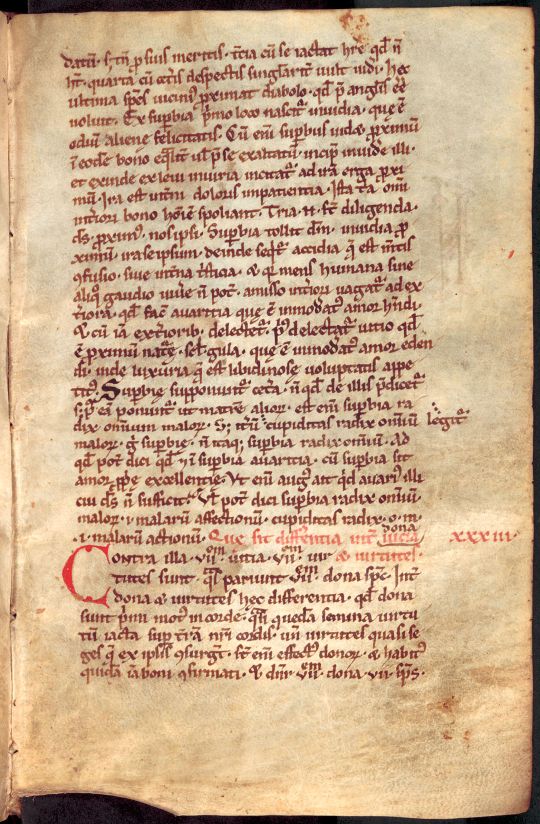 datū · s; tn̄ p suis meritis · t̄cia cū se iactat h̄re qd̄ n̄
ht̄ · quarta cū cet̄is despectis singlarit̄ uult uidi · hec
ultima sp̄es uicini⁹ p̄ximat diabolo · qd̄ p̄ angl̓is eē
uoluit · Ex supbia p̄mo loco nascit᷑ inuidia · que ē
odiū aliene felicitatis · Cū eni supbus uidet p̄ximū
ī eodē bono eq̄lit̄ ul̓ p̄ se exaltatū · incip̄ inuid̄e illi ·
et exinde ex leui iniuria incitat᷑ ad irā erga p̄xi
mū · Ira est uit̄m doloris impatientia · Ista t̄a om̄i
int̄iori bono hōiem spoliant · Tria n̄ st̄ diligenda ·
ds̄ · p̄xim⁹ · nosipsi · Supbia tollit dm̄ · inuidia p̄
ximū · ira seipsum · deinde seqt᷑ accidia q̄ est m̄tis
ꝯfusio · siue int̄na t̄sticia · & q̄ mens humana sine
aliq̊ gaudio uiu̓e n̄ pot̄ · amisso int̄iori uagat᷑ ad ex
t̄iora · qd̄ fac̄ auaritia que ē inmod̓at⁹ amor hn̄di ·
& cū iā ext̄iorib⁹ delectet᷑ · p⁹ delectat᷑ uitio qd̄
ē p̄ximū nat̄e · scl̓ gula · que ē inmod̓at⁹ amor eden
di · inde luxuria q̄ est libidinose uoluptatis appe
tit⁹ · Supbię supponunt᷑ cet̓a · n̄ qd̄ de illis p̄dicet᷑
s; p̄ ea ponunt᷑ ut mat̄ne alior̄ · est eni supbia ra
dix omnium malor̄ · S; it̓ū cupiditas radix omniū
malor̄ · ḡ supbię · n̄ itaq; supbia radix omniū · Ad
qd̄ pot̄ dici qd̄ supbia auaritia · cū supbia sit
amor sp̄e excellentie · Ut eni aug⁹ ait qd̄ auari⁹ illi
cui ds̄ n̄ sufficit · Ul̓ pot̄ dici supbia radix omniū
malor̄ · i · malarū affectionū · cupiditas radix · o · m ·
· i · malarū actionū · Que sit differentia int̄ uicia
dona
& uirtutes ·
legit᷑ ·
xxxiii ·
Contra illa · vii · uitia · vii · uir
tutes sunt · q̄s pariunt vii · dona sp̄c · Int̄
dona & uirtutes hęc differentia · qd̄ dona
sunt p̄mi mot⁹ in corde · q̄si quedā semina uirtu
tū iacta sup t̄rā nr̄i cordis · uū uirtutes quasi se
ges q̄ ex ipsis ꝯsurgt̄ · st̄ eni effect⁹ donor̄ · & habit⁹
quidā iā boni ꝯfirmati · & dn̄r vii · dona · vii · sp̄s ·